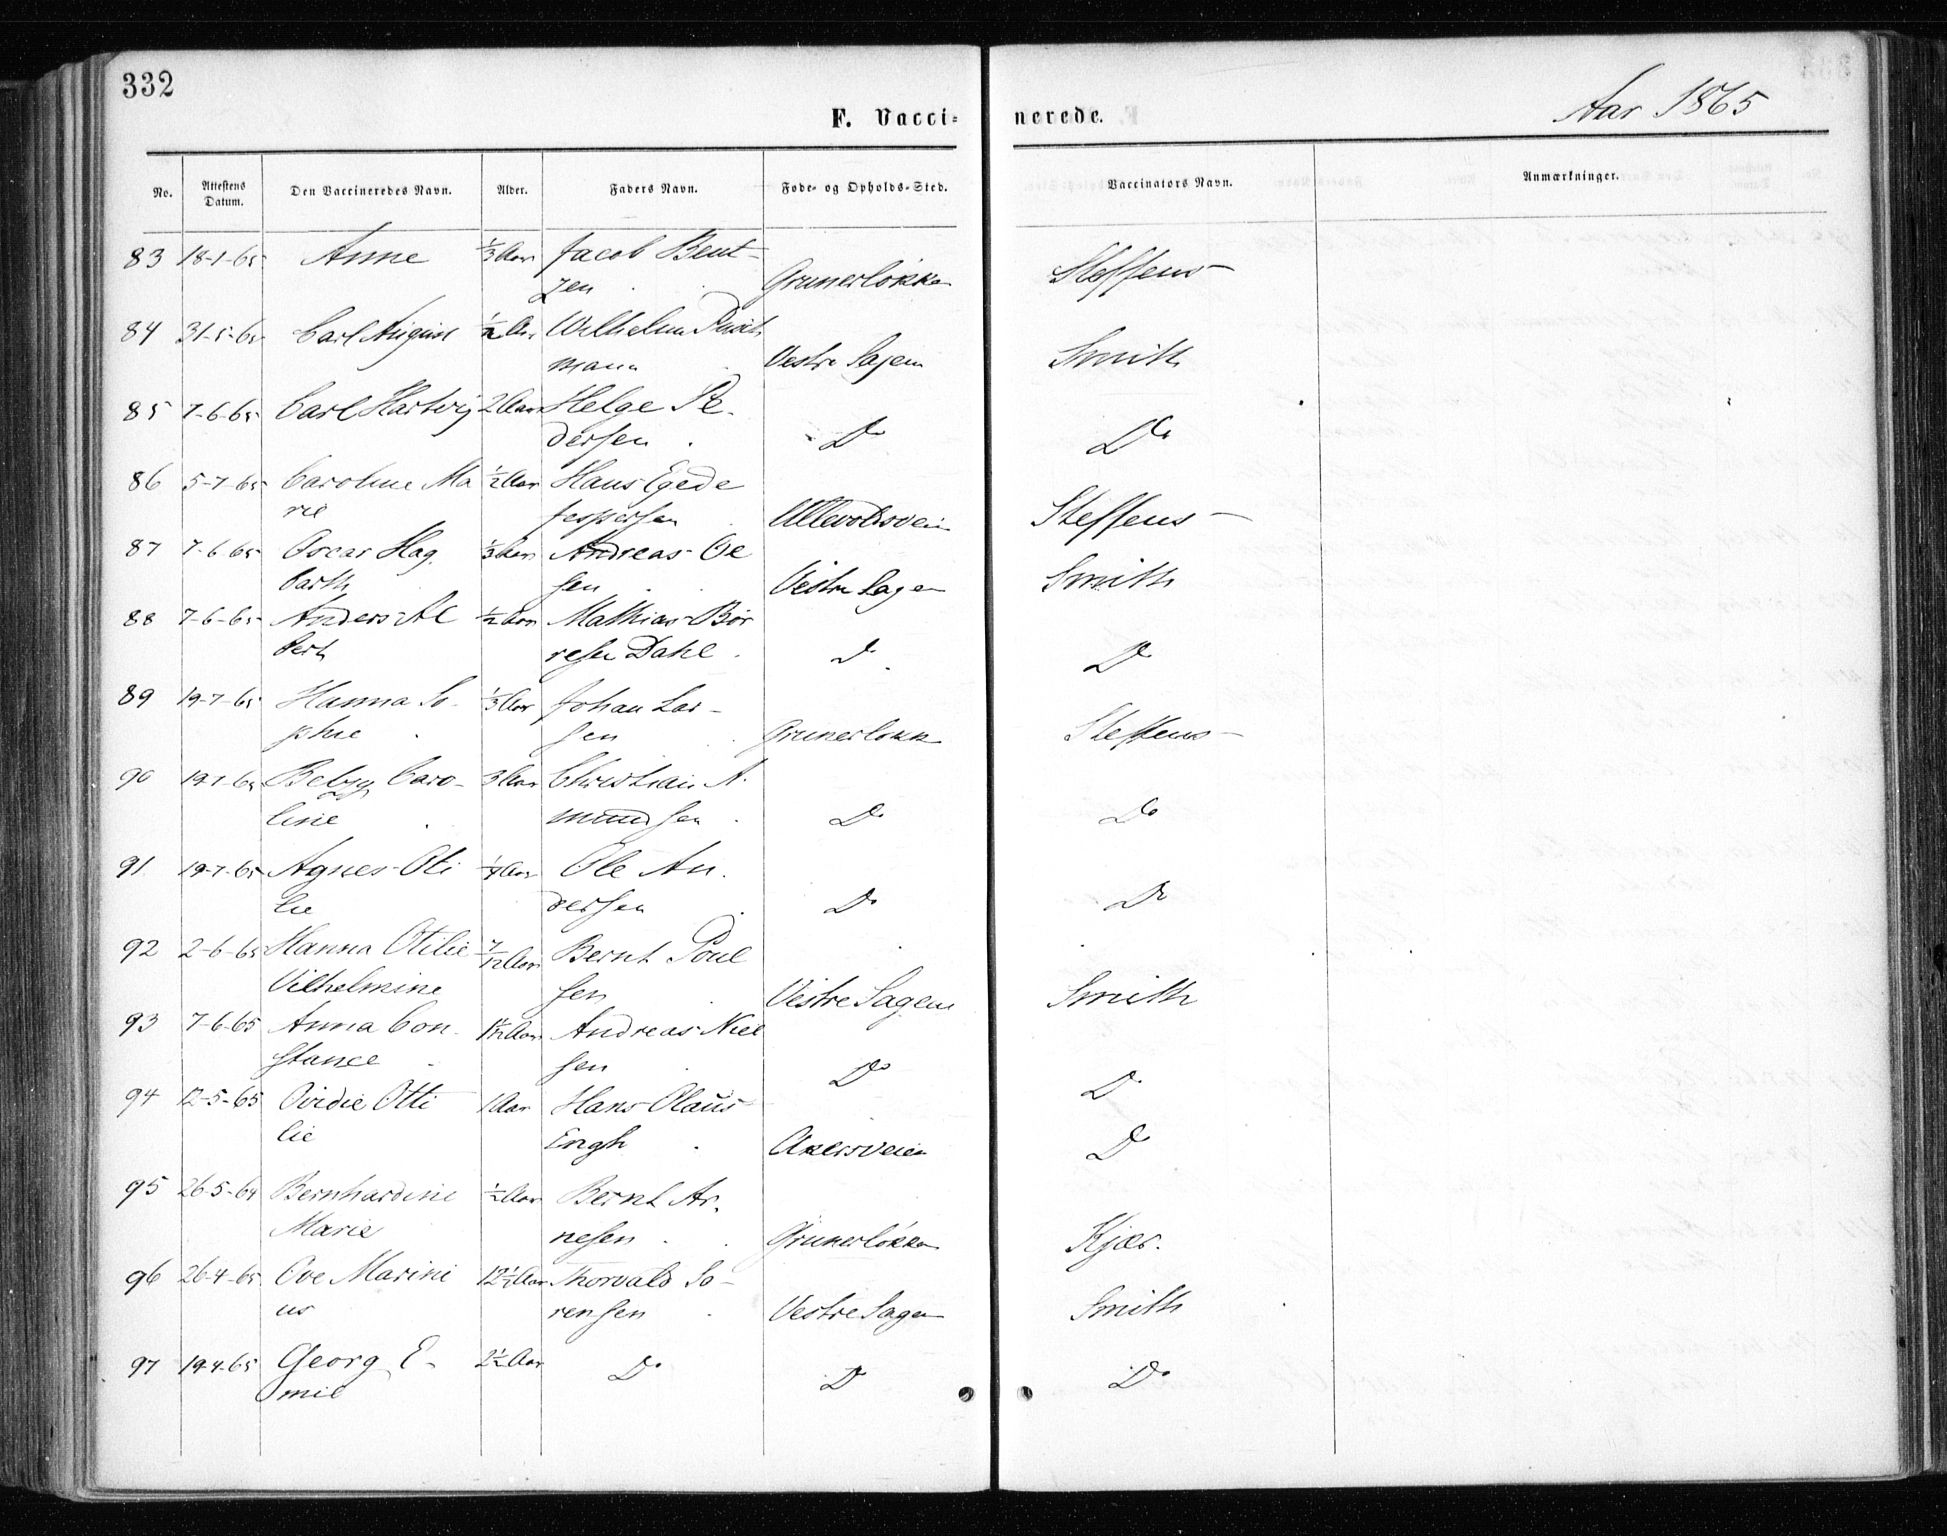 332
F. Vacci- nerede. Aar 1865
No. Attestens Datum. Den Vaccineredes Navn. Alder. Faders Navn. Føde- og Opholds-Sted. Vaccinators Navn. Anmærkninger.
83 18-1-65 Anne 1/3 Aar Jacob Bent-
zen Grunerløkka Steffens
84 31-5-65 Carl August 1/2 Aar Wilhelm
mann Vestre Sagen Smith
85 7-6-65 Carl Hartvig 2 Aar Helge Pe-
dersen Do Do
86 5-7-65 Caroline Ma 1/2 Aar Hans Egede
rie Jespersen Ullevoldsveien Steffens
87 7-6-65 Oscar Hag- 1/3 Aar Andreas Ol
barth sen Vestre Sagen Smith
88 7-6-65 Anders Al 1/2 Aar Mathias Bør
bert resen Dahl Do Do
89 19-7-65 Hanna So- 1/3 Aar Johan Lar-
phie sen Grunerløkk Steffens
90 19-7-65 Betsy Caro- 3 Aar Christian A-
line mundsen Do Do
91 19-7-65 Agnes Oti Aar Ole An-
lie dersen Do Do
92 2-6-65 Hanna Otilie 7/12 Aar Bernt Poul
Vilhelmine sen Vestre Sagen Smith
93 7-6-65 Anna Con- Aar Andreas Niel
stance sen Do Do
94 12-5-65 Ovidie Otti 1 Aar Hans Olaus
lie Engh Akersveien Do
95 26-5-64 Bernhardine 1/2 Aar Bernt Ar-
Marie nesen Grunerløkka Kjær.
96 26-4-65 Ove Marini 12 1/2 Aar Thorvald So-
us rensen Vestre Sagen Smith
97 19-4-65 Georg E- 2 1/2 Aar Do Do Do
mil